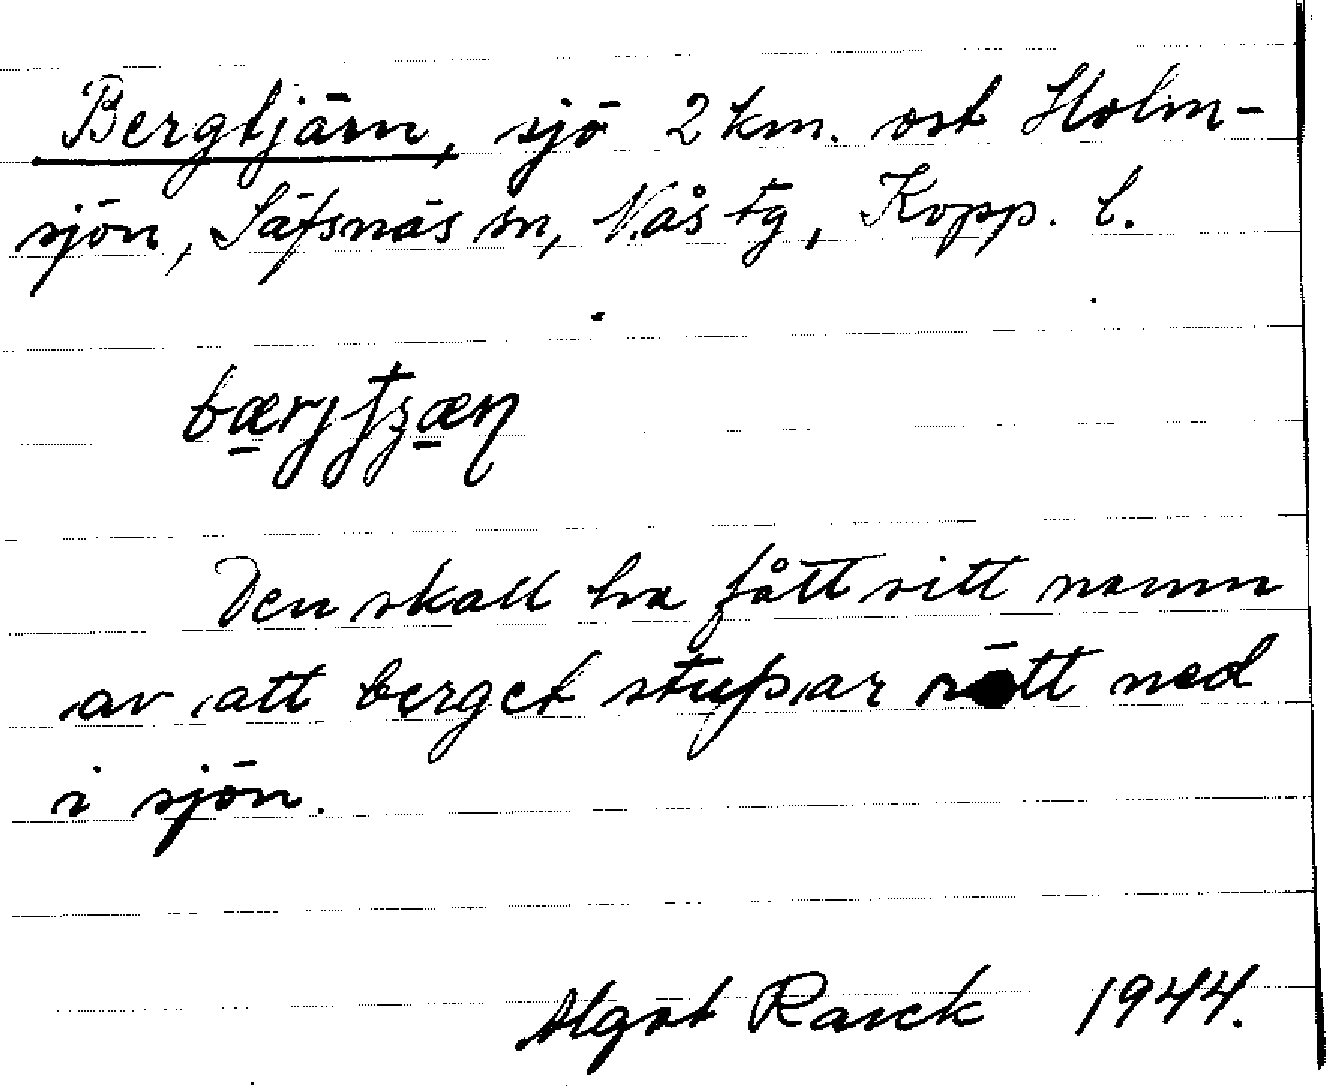 Bergtjärn, sjö 2 km. ost Holm-
sjön, Säfsnäs sn, Nås tg, Kopp. l.
Den skall ha fått sitt namn
av att berget stupar rätt ned
i sjön.
Algot Rauck 1944.